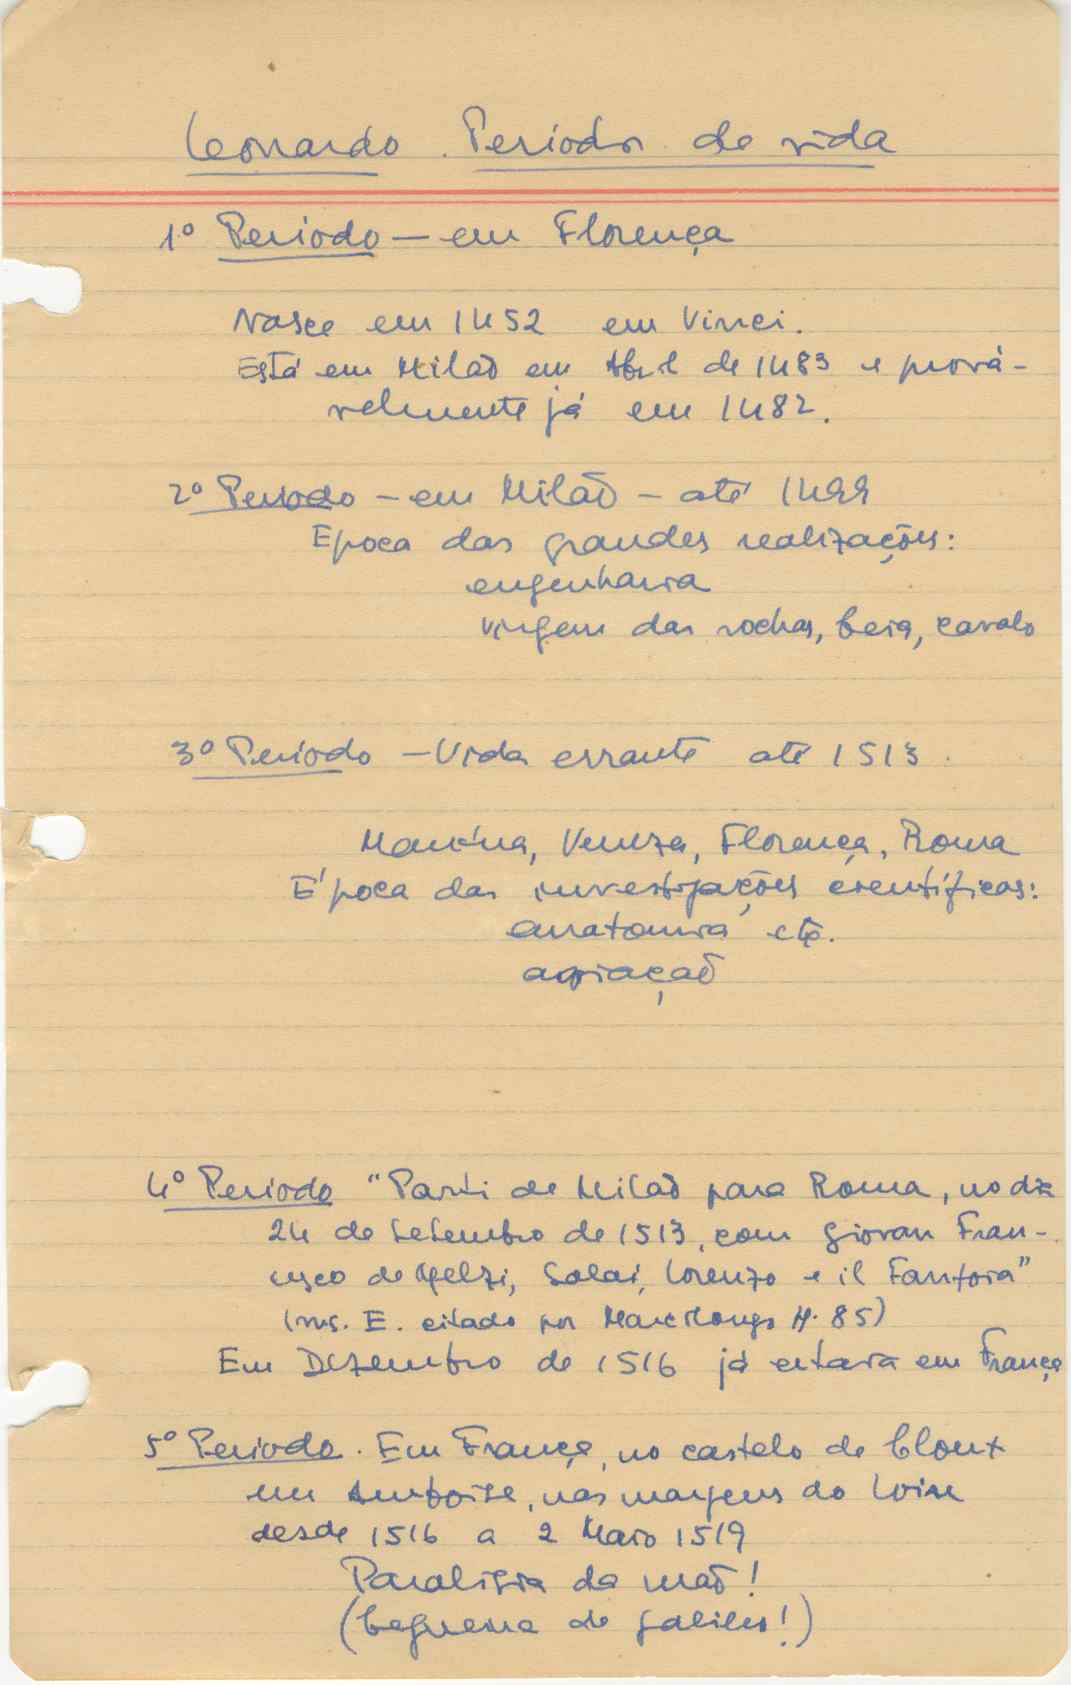 Leonardo. Periodos de vida
1º Periodo — em Florença
Nasce em 1452 em Vinci.
Está em Milão em Abril de 1483 e prová-
velmente já em 1482.
2º Periodo — em Milão — até 1499
Epoca das grandes realizações:
engenharia
Virgem das rochas, Ceia, cavalo
3º Periodo — Vida errante até 1513.
Mantua, Veneza, Florença, Roma
Época das investigações cientificas:
anatomia etc.
aviação
4º Periodo "Parti de Milão para Roma, no dia
24 de Setembro de 1513, com Giovan Fran-
cesco de Melzi, Salai, Lorenzo e il Fanfoia"
(ms. E. citado por Marcolongo p. 85)
Em Dezembro de 1516 já estava em França
5º Periodo. Em França, no castelo de Cloux
em Amboise, nas margens do Loire
desde 1516 a 2 Maio 1519
Paralisia da mão!
(Cegueira de Galileu!)